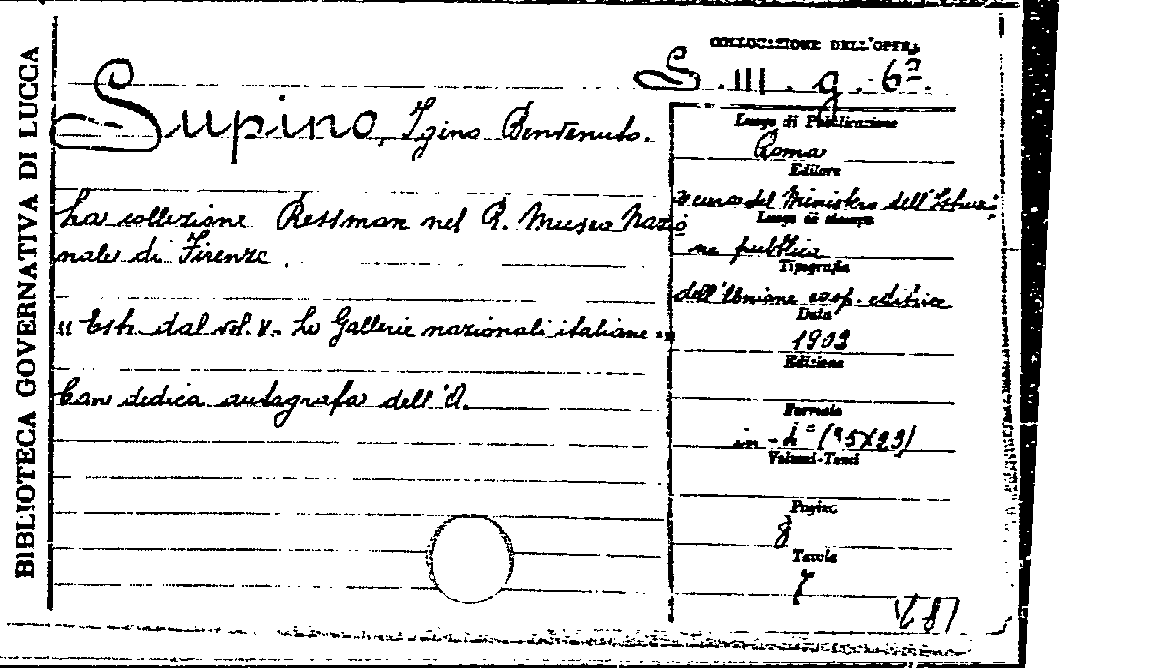 BIBLIOTECA GOVERNATIVA DI LUCCA
COLLOCAZIONE DELL'OPERA
S. III. g. 6a.
Supino, Igino Benvenuto.
La collezione Ressman nel R. Museo Nazio
nale di Firenze.
"Estr. dal vol. V. Le Gallerie nazionali italiane."
Con dedica autografa dell'A.
Luogo di Pubblicazione
Roma
Editore
a cura del Ministero dell'Istruzio:
Luogo di stampa
ne pubblica
Tipografia
dell'Unione coop. editrice
Data
1902
Edizione
Formato
in-4° (35X23)
Volumi-Tomi
Pagine
8
Tavole
7